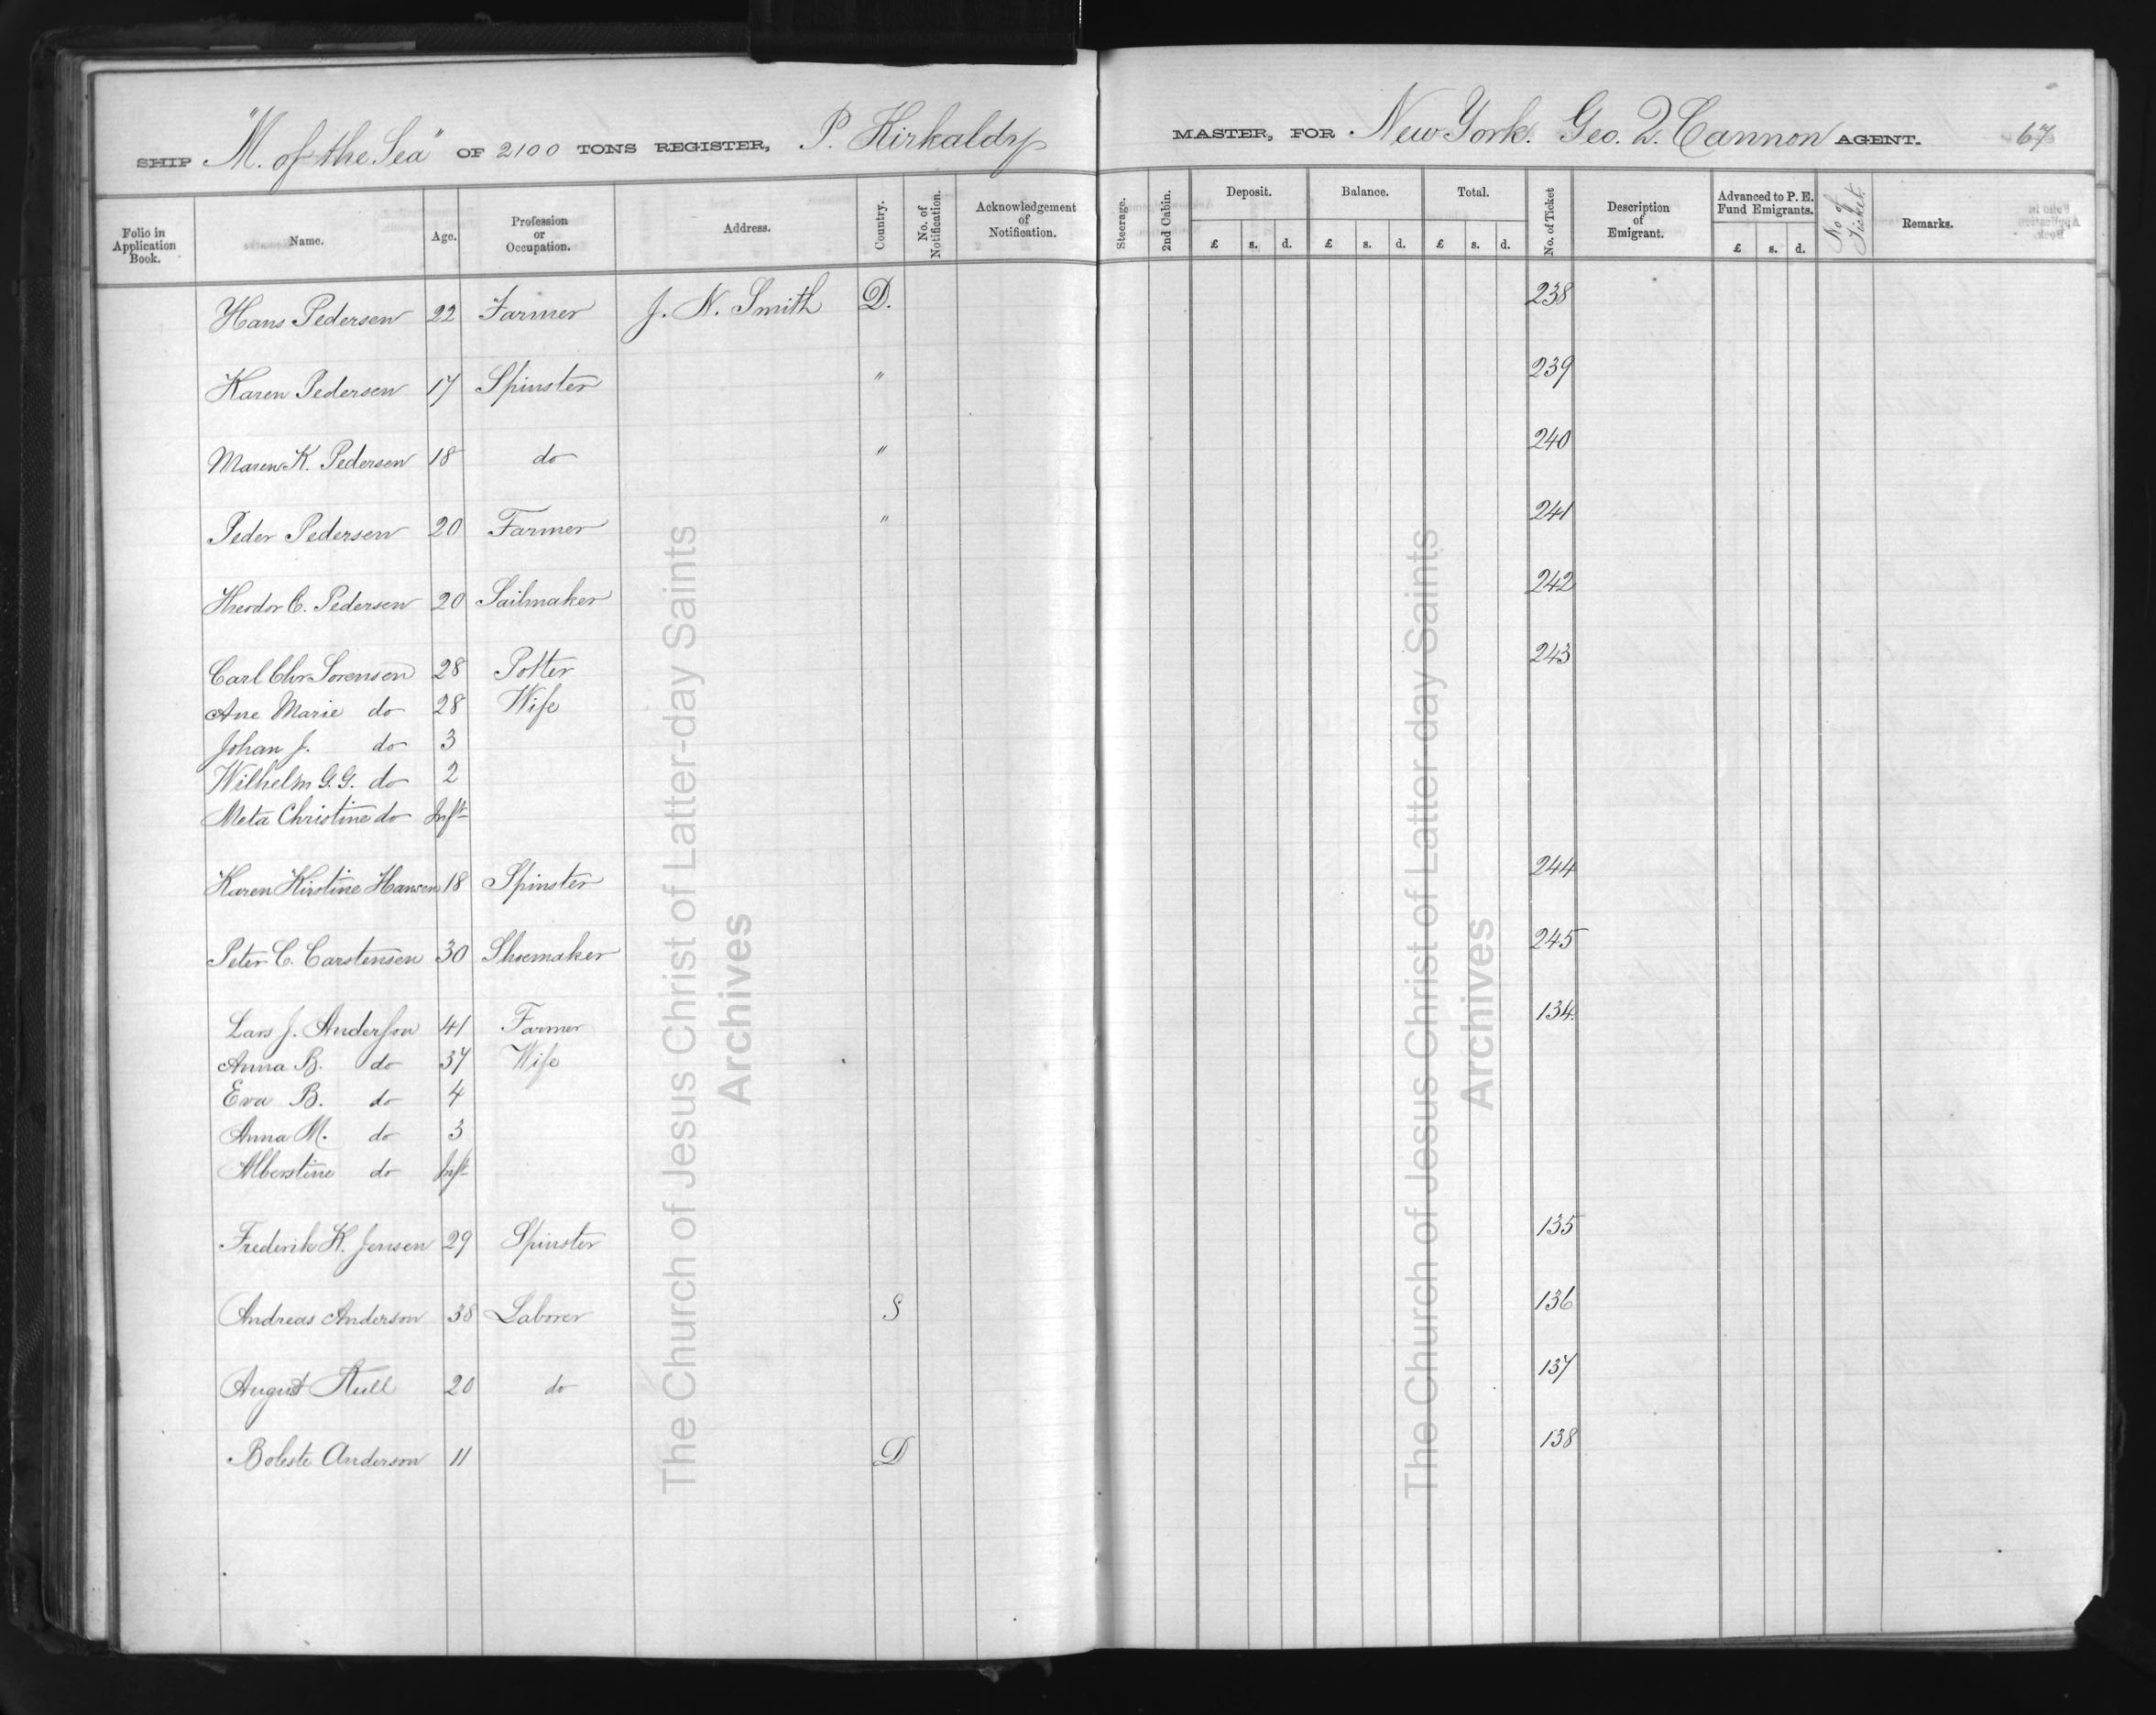 SHIP "M. of the Sea" OF 2100 TONS REGISTER, P. Kirkaldy MASTER, FOR New York. Geo. Q. Cannon AGENT. 67
Folio in Application Book. Name. Age. Profession or Occupation. Address. Country. No. of Notification. Acknowledgement of Notification. Steerage. 2nd Cabin. Deposit. £ s. d. Balance. £ s. d. Total. £ s. d. No. of Ticket Description of Emigrant. Advanced to P. E. Fund Emigrants. £ s. d. No of Ticket. Remarks.
Hans Pedersen 22 Farmer J. N. Smith D. 238
Karen Pedersen 17 Spinster " 239
Maren K. Pedersen 18 do " 240
Peder Pedersen 20 Farmer " 241
Theodor C. Pedersen 20 Sailmaker 242
Carl Chr Sorensen 28 Potter 243
Ane Marie do 28 Wife
Johan J. do 3
Wilhelm G.G. do 2
Meta Christine do Inft
Karen Kirstine Hansen 18 Spinster 244
Peter C. Carstensen 30 Shoemaker 245
Lars J. Anderson 41 Farmer 134.
Anna B. do 37 Wife
Eva B. do 4
Anna M. do 3
Alberstine do Inft
Frederik K. Jensen 29 Spinster 135
Andreas Anderson 38 Laborer S 136
August Kull 20 do 137
Boleste Anderson 11 D 138
The Church of Jesus Christ of Latter-day Saints
Archives
The Church of Jesus Christ of Latter-day Saints
Archives